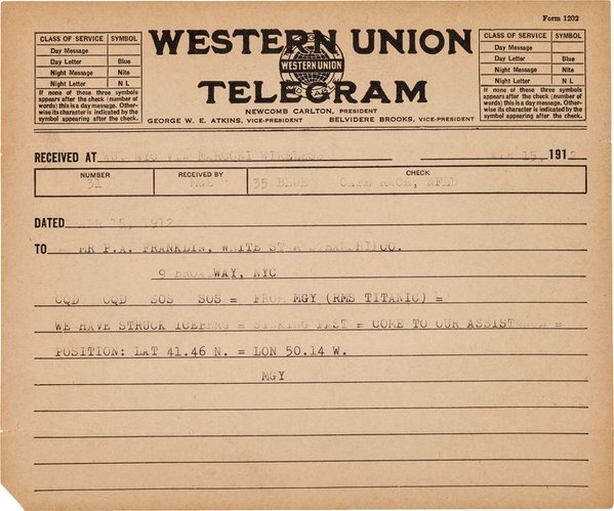 Form 1202
CLASS OF SERVICE SYMBOL
Day Message
Day Letter Blue
Night Message Nite
Night Letter N L
If none of these three symbols
appears after the check (number of
words) this is a day message. Other-
wise its character is indicated by the
symbol appearing after the check.
WESTERN UNION
WESTERN UNION
TELEGRAM
NEWCOMB CARLTON, PRESIDENT
GEORGE W. E. ATKINS, VICE-PRESIDENT BELVIDERE BROOKS, VICE-PRESIDENT
CLASS OF SERVICE SYMBOL
Day Message
Day Letter Blue
Night Message Nite
Night Letter N L
If none of these three symbols
appears after the check (number of
words) this is a day message. Other-
wise its character is indicated by the
symbol appearing after the check.
RECEIVED AT VIA MARCONI WIRELESS 15, 1912
NUMBER RECEIVED BY CHECK
31 35 BLUE CAPE RACE, NFLD
DATED APR 15, 1912
TO MR P.A. FRANKLIN, WHITE STAR STEAMSHIP CO.
9 BROADWAY, NYC
CQD CQD SOS SOS = FROM MGY (RMS TITANIC) =
WE HAVE STRUCK ICEBERG = SINKING FAST = COME TO OUR ASSISTANCE =
POSITION: LAT 41.46 N. = LON 50.14 W.
MGY